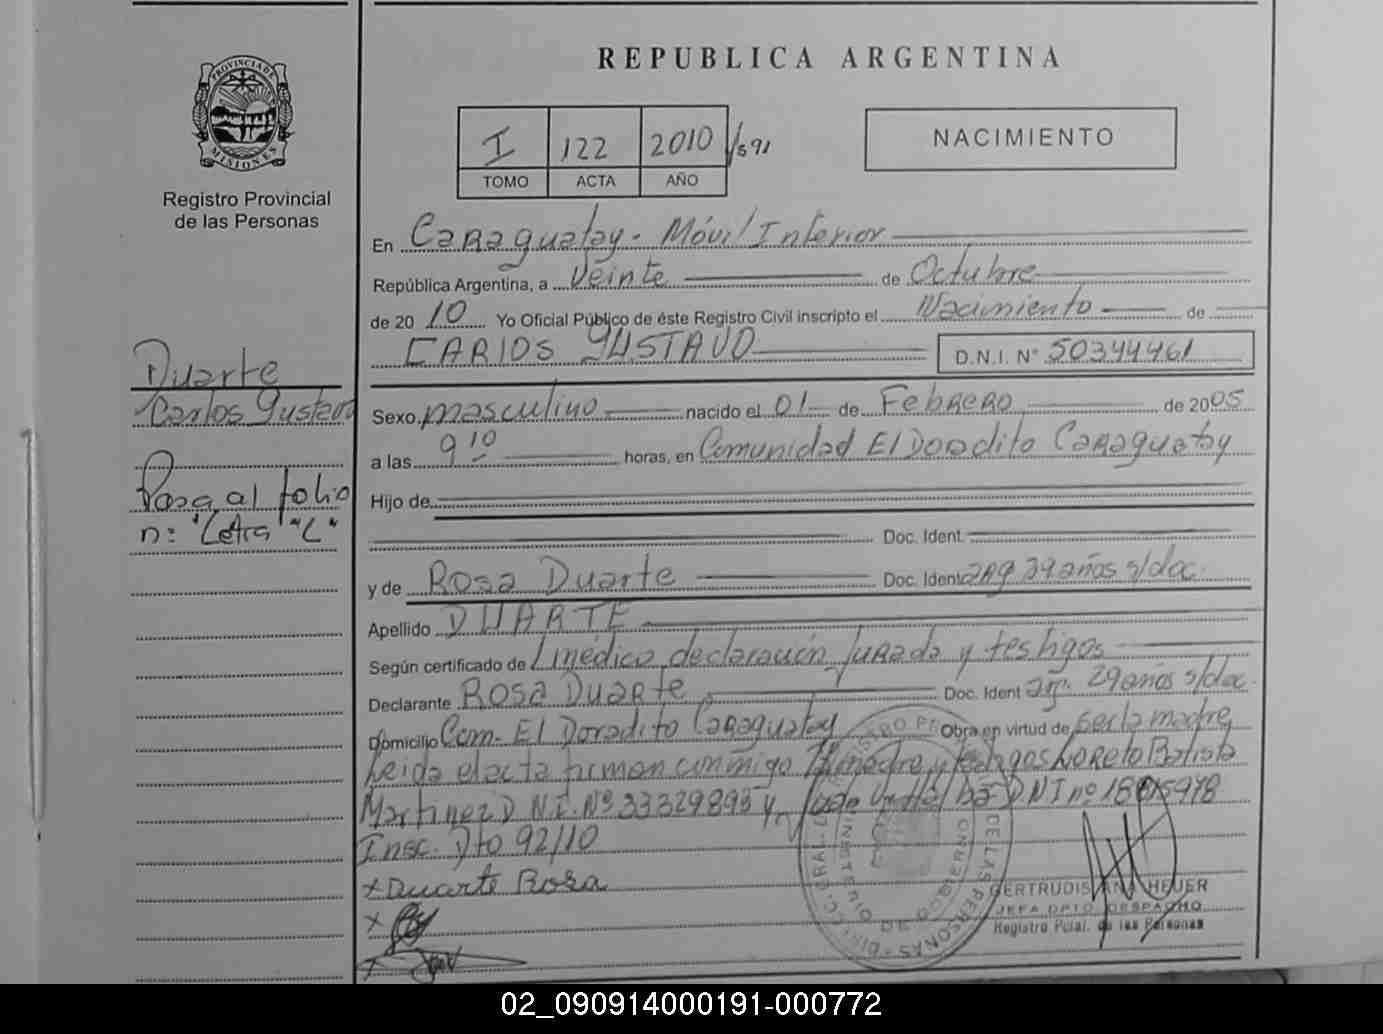 REPUBLICA ARGENTINA
PROVINCIA DE
MISIONES
Registro Provincial
de las Personas
I 122 2010 /591
TOMO ACTA AÑO
NACIMIENTO
En Caraguatay - Móvil Interior
República Argentina, a Veinte de Octubre
de 2010 Yo Oficial Público de éste Registro Civil inscripto el Nacimiento de
CARLOS GUSTAVO D.N.I. N° 50344461
Duarte
Carlos Gustavo
Pasa al folio
n: "Letra "C"
Sexo masculino nacido el 01 de FEBRERO de 2005
a las 9 10 horas, en Comunidad El Doradito Caraguatay
Hijo de
Doc. Ident.
y de Rosa Duarte Doc. Ident arg 29 años s/doc.
Apellido DUARTE
Según certificado de médico, declaración jurada y testigos
Declarante ROSA DUARTE Doc. Ident arg. 29 años s/doc.
Domicilio Com. El Doradito Caraguatay Obra en virtud de ser la madre
Leida el acta firman conmigo la madre y testigos LORETO Batista
Martinez D N.I. Nº 33329895 y DNI nº
Insc. Dto 92/10
x Duarte Rosa
x
x
GERTRUDIS ANA HEUER
JEFA DPTO. DESPACHO
Registro Pcial. de las Personas
DE LAS PERSONAS
02_090914000191-000772